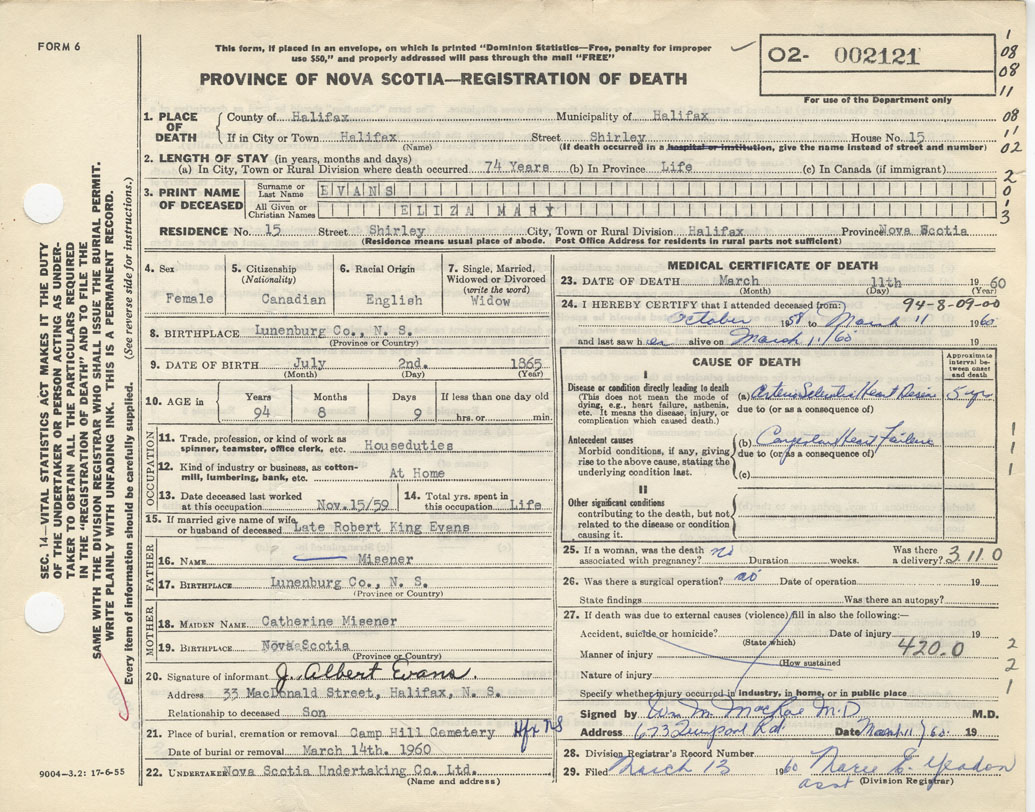 FORM 6
This form, if placed in an envelope, on which is printed "Dominion Statistics—Free, penalty for improper
use $50," and properly addressed will pass through the mail "FREE"
PROVINCE OF NOVA SCOTIA—REGISTRATION OF DEATH
O2- 002121
For use of the Department only
1
08
08
11
08
11
02
2
0
3
SEC. 14—VITAL STATISTICS ACT MAKES IT THE DUTY
OF THE UNDERTAKER OR PERSON ACTING AS UNDER-
TAKER TO OBTAIN ALL THE PARTICULARS REQUIRED
IN THE "REGISTRATION OF DEATH" AND TO FILE THE
SAME WITH THE DIVISION REGISTRAR WHO SHALL ISSUE THE BURIAL PERMIT.
WRITE PLAINLY WITH UNFADING INK. THIS IS A PERMANENT RECORD.
Every item of information should be carefully supplied. (See reverse side for instructions.)
1. PLACE OF DEATH
County of Halifax Municipality of Halifax
If in City or Town Halifax Street Shirley House No. 15
(Name) (If death occurred in a hospital or institution, give the name instead of street and number)
2. LENGTH OF STAY (in years, months and days)
(a) In City, Town or Rural Division where death occurred 74 Years (b) In Province Life (c) In Canada (if immigrant)
3. PRINT NAME OF DECEASED
Surname or Last Name EVANS
All Given or Christian Names ELIZA MARY
RESIDENCE No. 15 Street Shirley City, Town or Rural Division Halifax Province Nova Scotia
(Residence means usual place of abode. Post Office Address for residents in rural parts not sufficient)
4. Sex
Female
5. Citizenship
(Nationality)
Canadian
6. Racial Origin
English
7. Single, Married,
Widowed or Divorced
(write the word)
Widow
8. BIRTHPLACE Lunenburg Co., N. S.
(Province or Country)
9. DATE OF BIRTH July 2nd. 1865
(Month) (Day) (Year)
10. AGE in Years Months Days If less than one day old
94 8 9 hrs. or min.
OCCUPATION
11. Trade, profession, or kind of work as
spinner, teamster, office clerk, etc. Houseduties
12. Kind of industry or business, as cotton-
mill, lumbering, bank, etc. At Home
13. Date deceased last worked
at this occupation Nov.15/59
14. Total yrs. spent in
this occupation Life
15. If married give name of wife
or husband of deceased Late Robert King Evans
FATHER
16. NAME Misener
17. BIRTHPLACE Lunenburg Co., N. S.
(Province or Country)
MOTHER
18. MAIDEN NAME Catherine Misener
19. BIRTHPLACE Nova Scotia
(Province or Country)
20. Signature of informant J. Albert Evans
Address 33 MacDonald Street, Halifax, N. S.
Relationship to deceased Son
21. Place of burial, cremation or removal Camp Hill Cemetery Hfx NS
Date of burial or removal March 14th. 1960
22. UNDERTAKER Nova Scotia Undertaking Co. Ltd.
(Name and address)
9004—3.2: 17-6-55
MEDICAL CERTIFICATE OF DEATH
23. DATE OF DEATH March 11th 1960
(Month) (Day) (Year)
24. I HEREBY CERTIFY that I attended deceased from: 94-8-09-00
October 1958 to March 11 1960
and last saw her alive on March 11/60 19
CAUSE OF DEATH
Approximate
interval be-
tween onset
and death
I
Disease or condition directly leading to death
(This does not mean the mode of
dying, e.g., heart failure, asthenia,
etc. It means the disease, injury, or
complication which caused death.)
(a) Arterio Sclerotic Heart Disease 5 yrs
due to (or as a consequence of)
Antecedent causes
Morbid conditions, if any, giving
rise to the above cause, stating the
underlying condition last.
(b) Congestive Heart Failure
due to (or as a consequence of)
(c)
1
1
1
II
Other significant conditions
contributing to the death, but not
related to the disease or condition
causing it.
25. If a woman, was the death no Was there
associated with pregnancy? Duration weeks. a delivery? 3.11.0
26. Was there a surgical operation? no Date of operation 19
State findings Was there an autopsy?
27. If death was due to external causes (violence) fill in also the following:—
Accident, suicide or homicide? Date of injury 19
(State which)
Manner of injury 420.0
(How sustained
Nature of injury
Specify whether injury occurred in industry, in home, or in public place
2
2
1
Signed by Wm M. MacRae M.D M.D.
Address 673 Date March 11/60 19
28. Division Registrar's Record Number
29. Filed March 13 1960 Marie E. Yeadon
asst (Division Registrar)